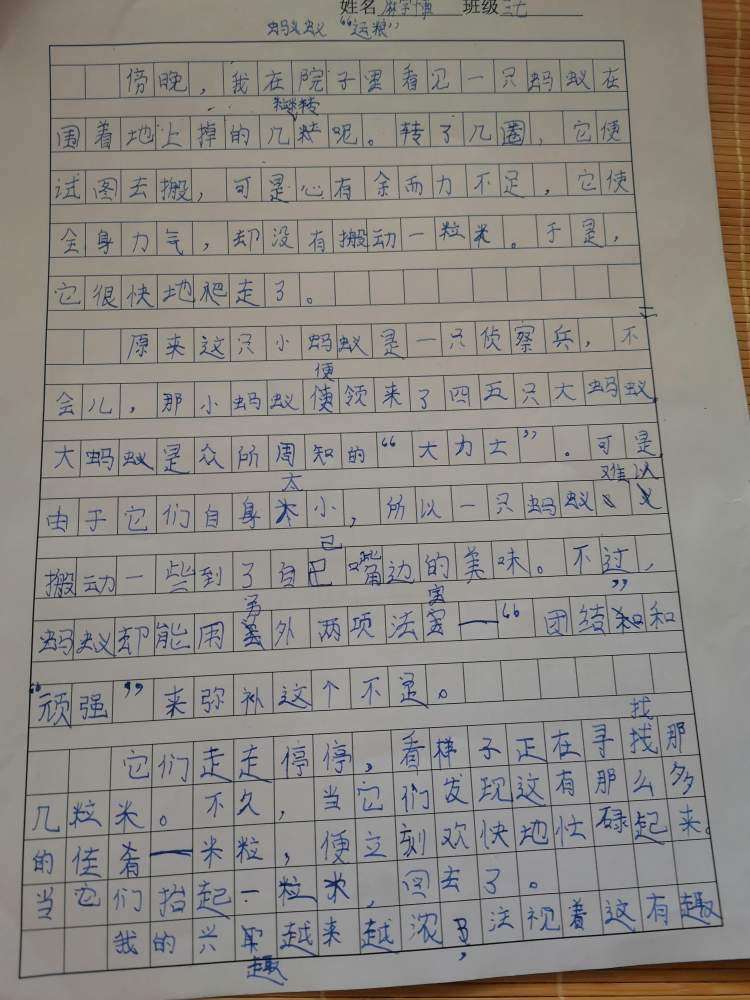 姓名 班级 三七
蚂蚁 “运粮”
傍晚，我在院子里看见一只蚂蚁在
围着地上掉的几粒呢。转了几圈，它便
试图去搬，可是心有余而力不足，它使
全身力气，却没有搬动一粒米。于是，
它很快地爬走了。
原来这只小蚂蚁是一只侦察兵，不
会儿，那小蚂蚁便领来了四五只大蚂蚁
大蚂蚁是众所周知的“大力士”。可是
由于它们自身太小，所以一只蚂蚁难以
搬动一些到了自己嘴边的美味。不过，
蚂蚁却能用另外两项法宝—“团结”和
“顽强”来弥补这个不足。
它们走走停停，看样子正在寻找那
几粒米。不久，当它们发现这有那么多
的佳肴—米粒，便立刻欢快地忙碌起来。
当它们抬起一粒米，回去了。
我的兴趣越来越浓了，注视着这有趣